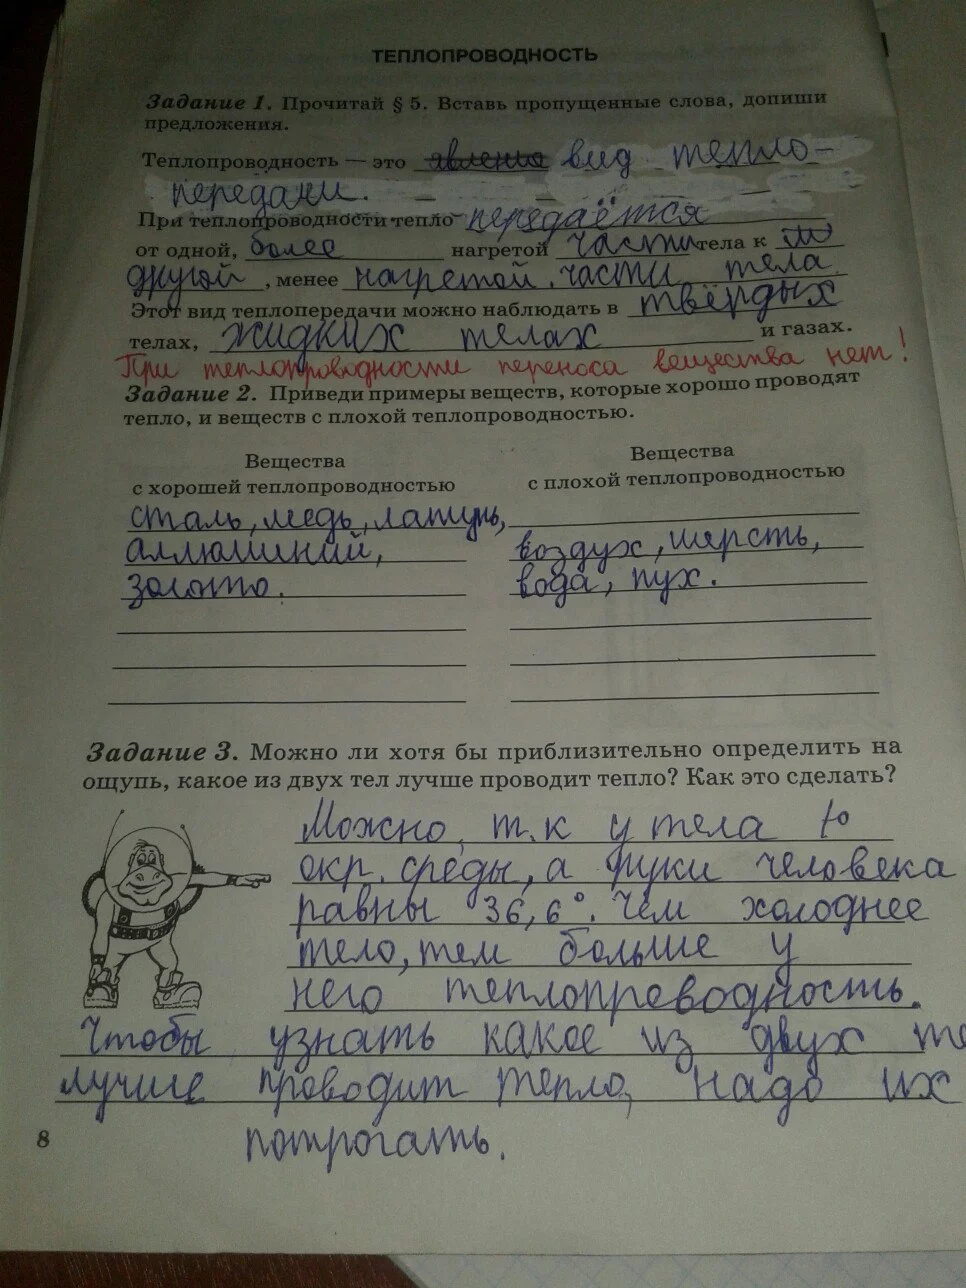 ТЕПЛОПРОВОДНОСТЬ
Задание 1. Прочитай § 5. Вставь пропущенные слова, допиши
предложения.
Теплопроводность — это явление вид тепло-
передачи.
При теплопроводности тепло передаётся
от одной, более нагретой части тела к
другой, менее нагретой части тела
Этот вид теплопередачи можно наблюдать в твёрдых
телах, жидких телах и газах.
При теплопроводности переноса вещества нет!
Задание 2. Приведи примеры веществ, которые хорошо проводят
тепло, и веществ с плохой теплопроводностью.
Вещества
с хорошей теплопроводностью
сталь, медь, латунь,
аллюминий,
золото.
Вещества
с плохой теплопроводностью
воздух, шерсть,
вода, пух.
Задание 3. Можно ли хотя бы приблизительно определить на
ощупь, какое из двух тел лучше проводит тепло? Как это сделать?
Можно, т.к у тела t°
окр. среды, а руки человека
равны 36,6°. Чем холоднее
тело, тем больше у
него теплопроводность.
Чтобы узнать какое из двух те
лучше проводит тепло, надо их
потрогать.
8